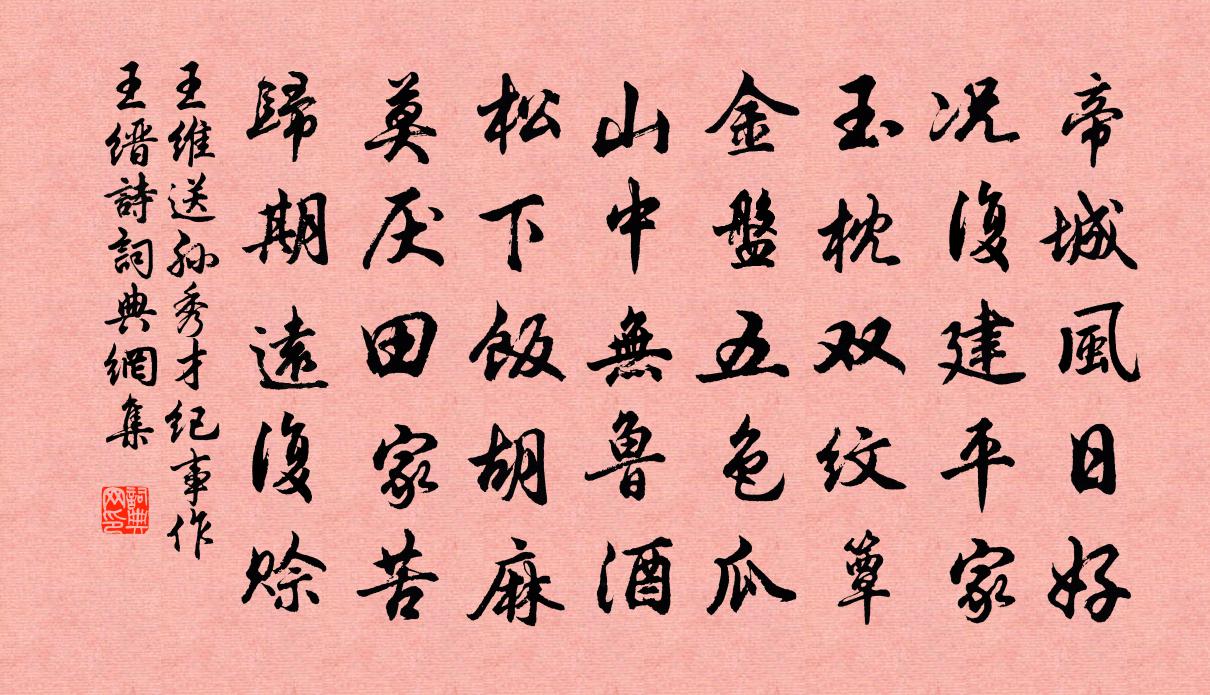 帝城風日好
况復建平家
玉枕双纹簟
金盤五色瓜
山中無鲁酒
松下飯胡麻
莫厌田家苦
歸期遠復赊
王維送孙秀才纪事作
王缙詩詞典網集
詞典网印